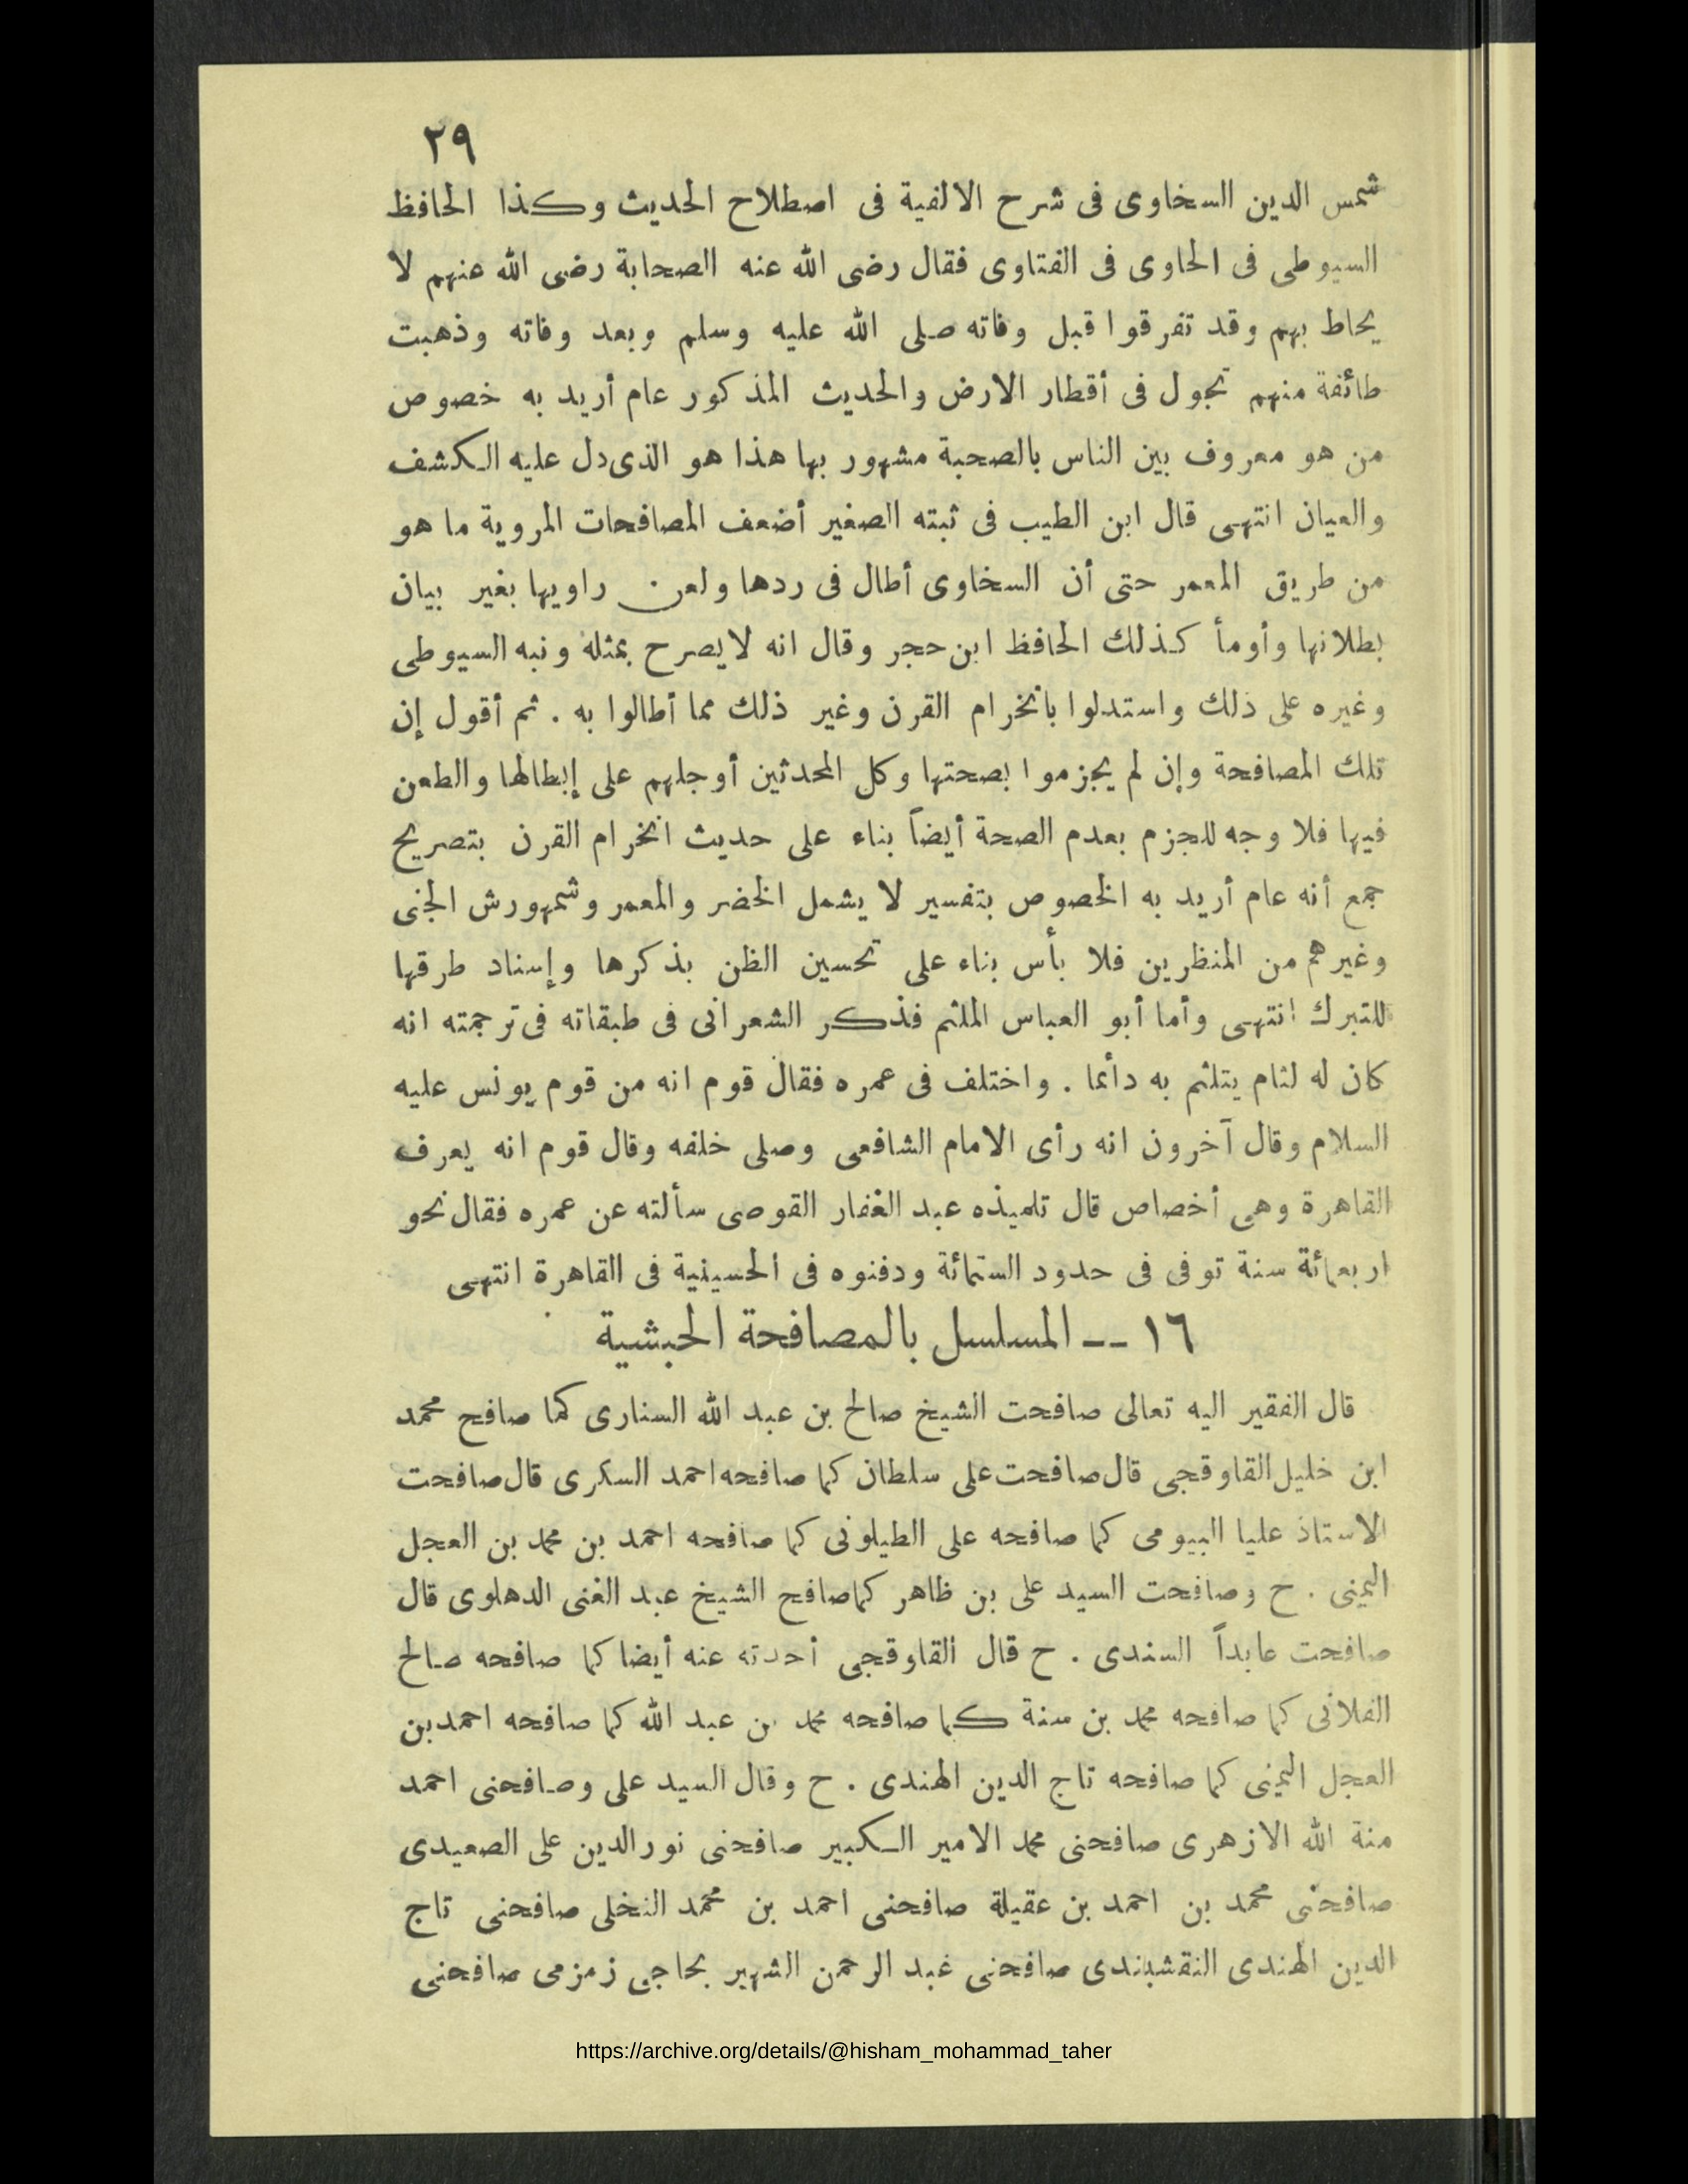 ٢٩
شمس الدين السخاوى فى شرح الالفية فى اصطلاح الحديث وكذا الحافظ
السيوطى فى الحاوى فى الفتاوى فقال رضى الله عنه الصحابة رضى الله عنهم لا
يحاط بهم وقد تفرقوا قبل وفاته صلى الله عليه وسلم وبعد وفاته وذهبت
طائفة منهم تجول فى أقطار الارض والحديث المذكور عام أريد به خصوص
من هو معروف بين الناس بالصحبة مشهور بها هذا هو الذى دل عليه الكشف
والعيان انتهى قال ابن الطيب فى ثبته الصغير أضعف المصافحات المروية ما هو
من طريق المعمر حتى أن السخاوى أطال فى ردها ولعن راويها بغير بيان
بطلانها وأومأ كذلك الحافظ ابن حجر وقال انه لا يصرح بمثله ونبه السيوطى
وغيره على ذلك واستدلوا بانخرام القرن وغير ذلك مما أطالوا به . ثم أقول إن
تلك المصافحة وإن لم يجزموا بصحتها وكل المحدثين أوجلهم على إبطالها والطعن
فيها فلا وجه للجزم بعدم الصحة أيضاً بناء على حديث انخرام القرن بتصريح
جمع أنه عام أريد به الخصوص بتفسير لا يشمل الخضر والمعمر وشمهورش الجنى
وغيرهم من المنظرين فلا بأس بناء على تحسين الظن بذكرها وإسناد طرقها
للتبرك انتهى وأما أبو العباس الملثم فذكر الشعرانى فى طبقاته فى ترجمته انه
كان له لثام يتلثم به دائما . واختلف فى عمره فقال قوم انه من قوم يونس عليه
السلام وقال آخرون انه رأى الامام الشافعى وصلى خلفه وقال قوم انه يعرف
القاهرة وهى أخصاص قال تلميذه عبد الغفار القوصى سألته عن عمره فقال نحو
اربعمائة سنة توفى فى حدود الستمائة ودفنوه فى الحسينية فى القاهرة انتهى
١٦ -- المسلسل بالمصافحة الحبشية
قال الفقير اليه تعالى صافحت الشيخ صالح بن عبد الله السنارى كما صافح محمد
ابن خليل القاوقجى قال صافحت على سلطان كما صافحه احمد السكرى قال صافحت
الاستاذ عليا البيومى كما صافحه على الطيلونى كما صافحه احمد بن محمد بن العجل
اليمنى . ح وصافحت السيد على بن ظاهر كما صافح الشيخ عبد الغنى الدهلوى قال
صافحت عابداً السندى . ح قال القاوقجى أخذته عنه أيضا كما صافحه صالح
الفلانى كما صافحه محمد بن سنة كما صافحه محمد بن عبد الله كما صافحه احمد بن
العجل اليمنى كما صافحه تاج الدين الهندى . ح وقال السيد على وصافحنى احمد
منة الله الازهرى صافحنى محمد الامير الكبير صافحنى نور الدين على الصعيدى
صافحنى محمد بن احمد بن عقيلة صافحنى احمد بن محمد النخلى صافحنى تاج
الدين الهندى النقشبندى صافحنى عبد الرحمن الشهير بحاجى زمزمى صافحنى
https://archive.org/details/@hisham_mohammad_taher